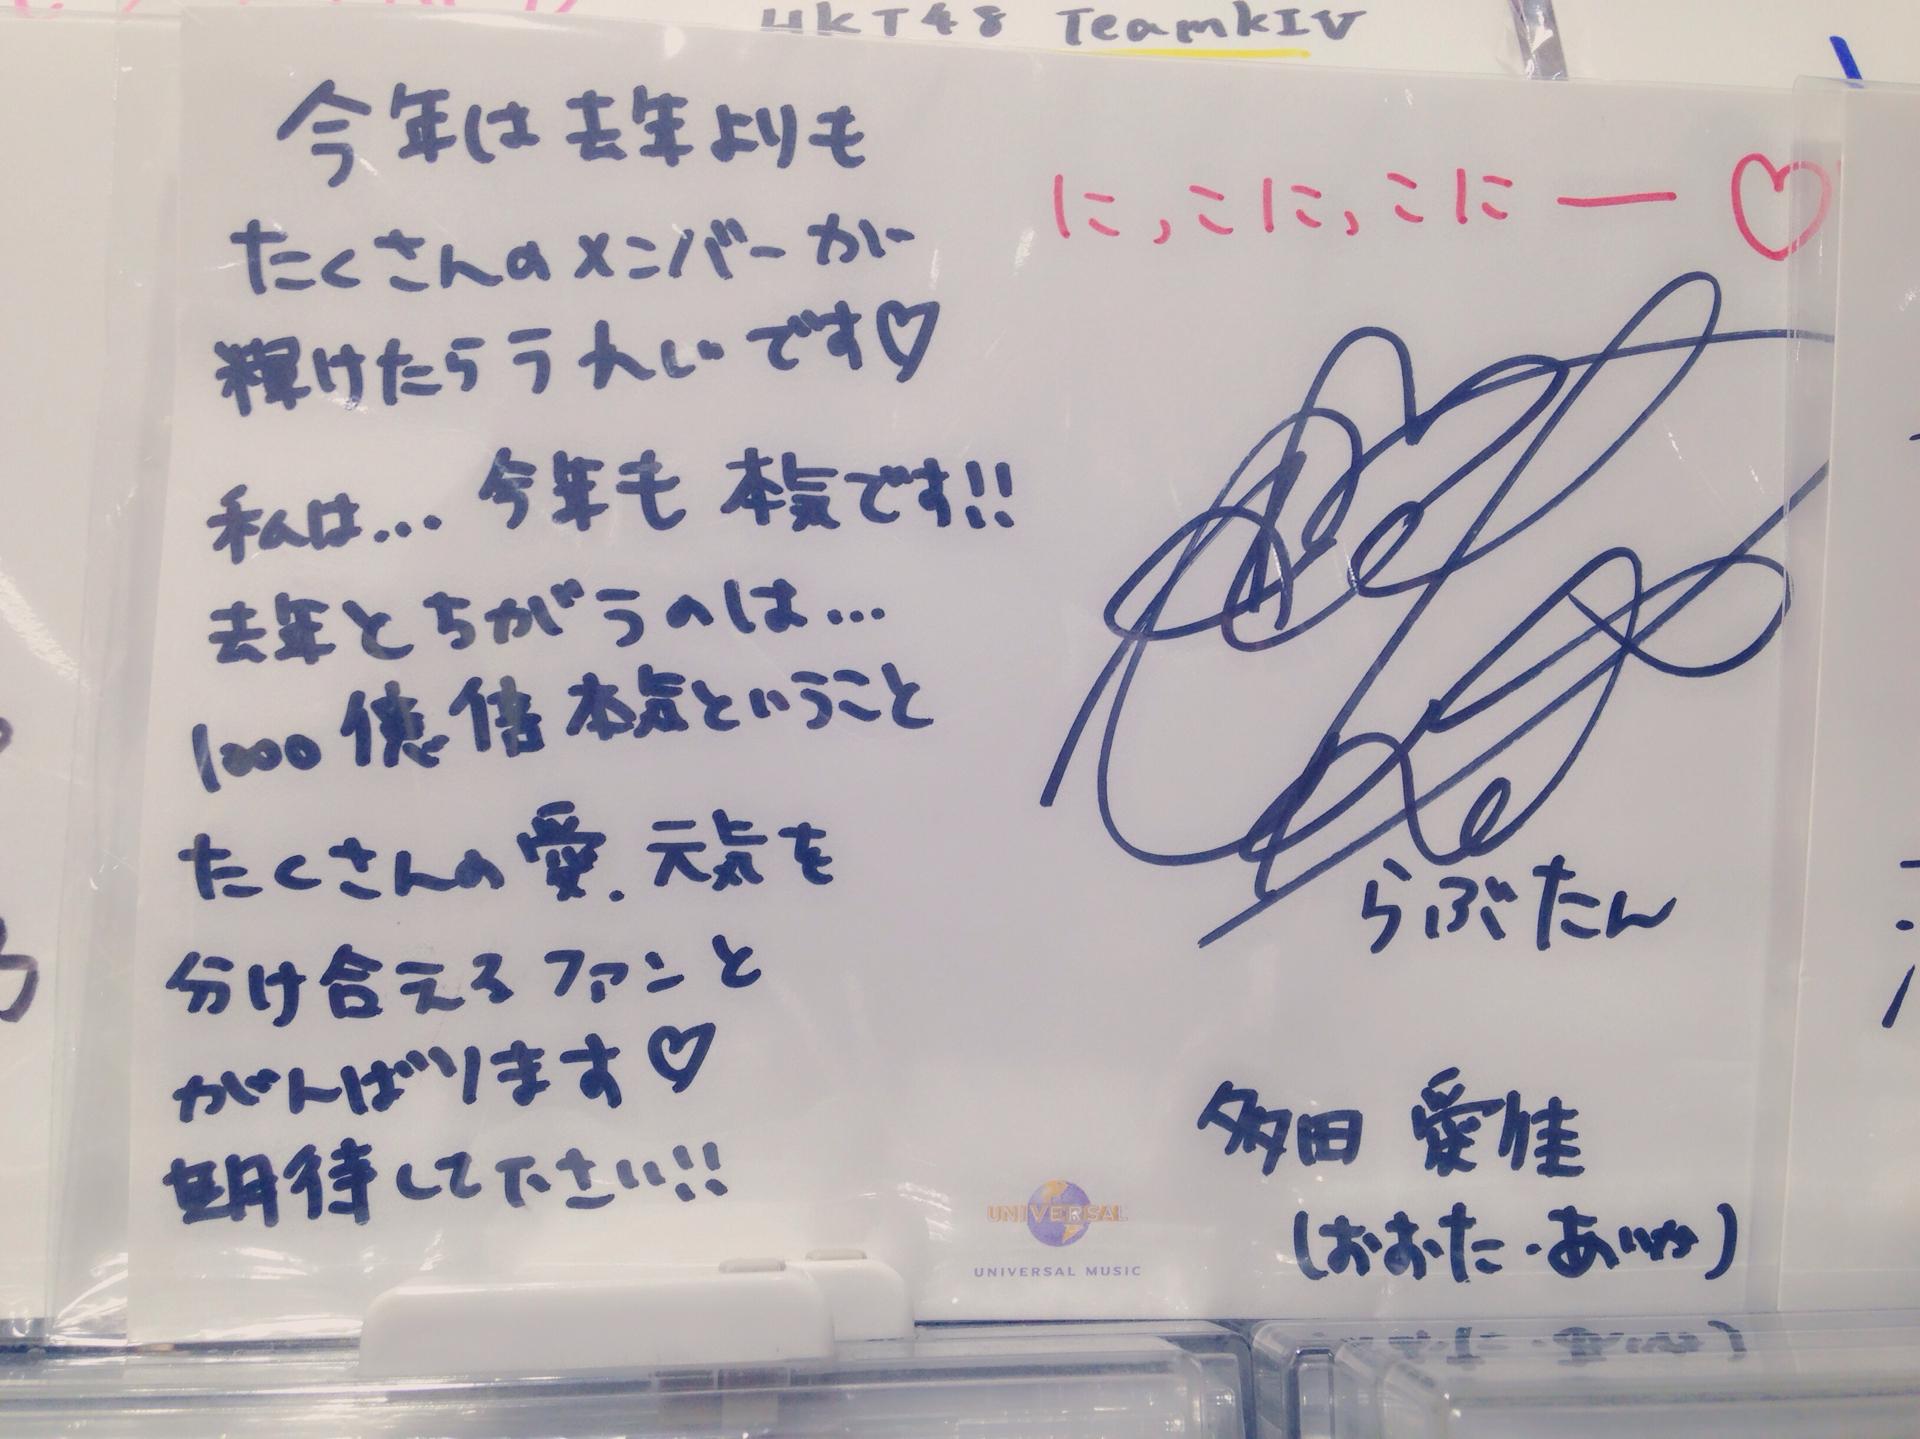 HKT48 TeamKIV
今年は去年よりも
たくさんのメンバーが
輝けたらうれしいです♡
私は...今年も本気です!!
去年とちがうのは...
1000億倍本気ということ
たくさんの愛.元気を
分け合えるファンと
がんばります♡
期待して下さい!!
にっこにっこにー♡
らぶたん
多田愛佳
(おおた・あいか)
UNIVERSAL
UNIVERSAL MUSIC